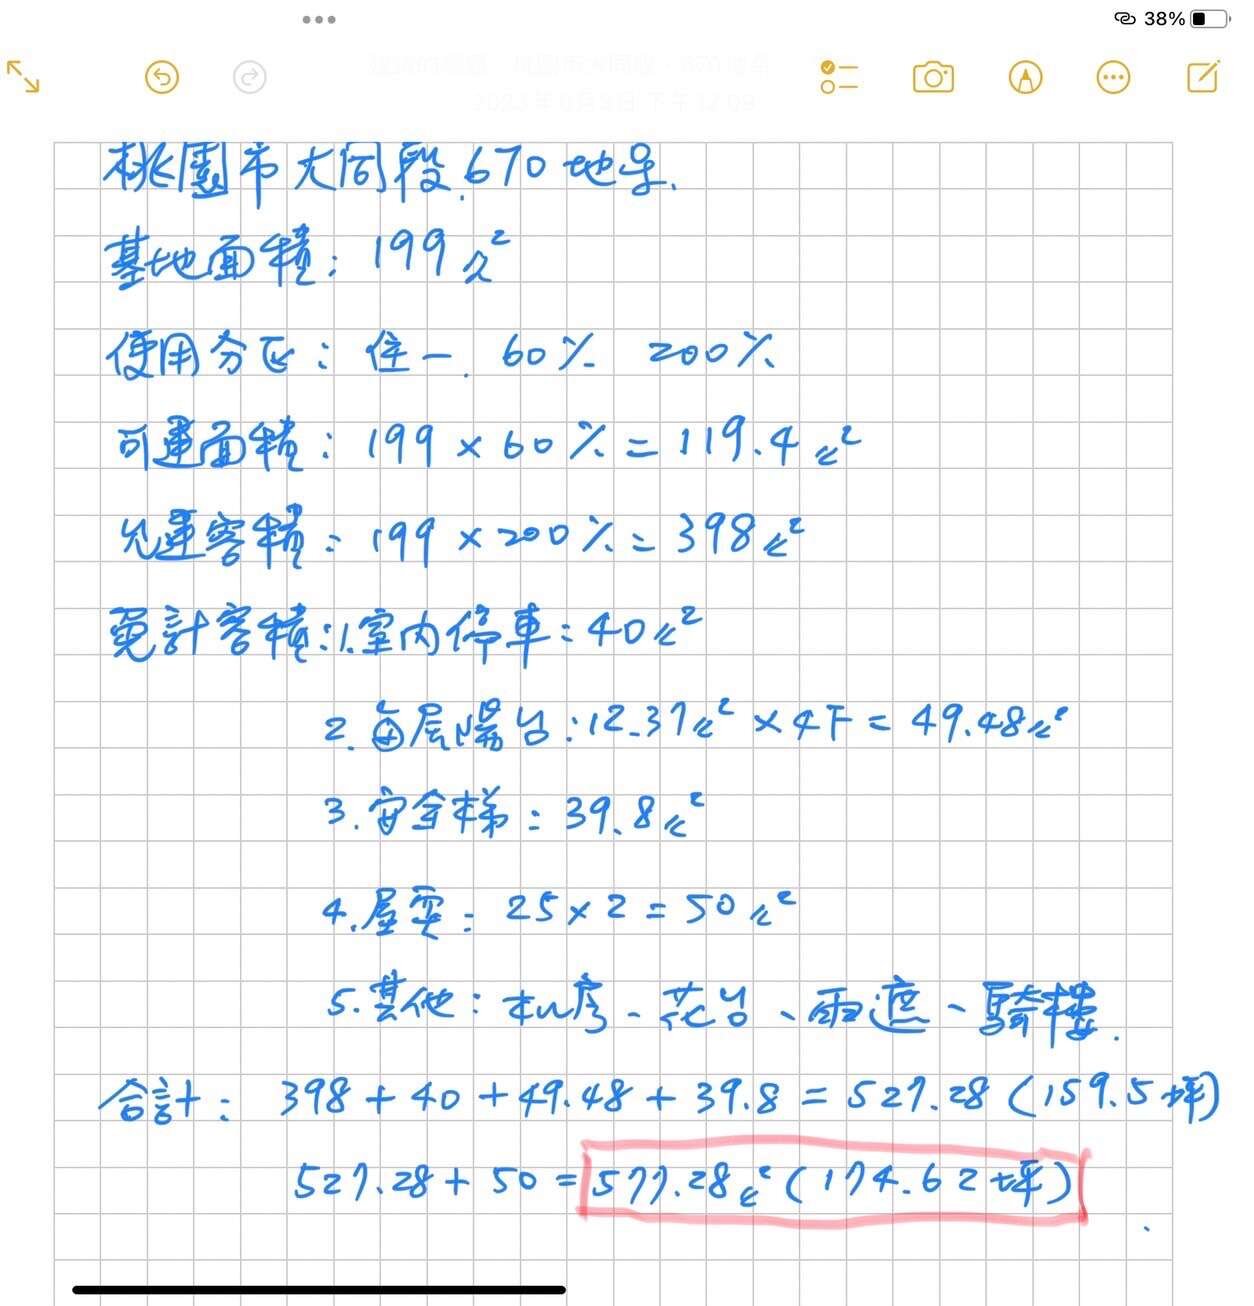 38%
桃園市大同段.670地号.
基地面積：199㎡
使用分区：住一. 60% 200%
可建面積：199×60%=119.4㎡
允建容積：199×200%=398㎡
免計容積：1.室內停車：40㎡
2.每层陽台：12.37㎡×4F=49.48㎡
3.安全梯：39.8㎡
4.屋突：25×2=50㎡
5.其他：机房、花台、雨遮、騎樓.
合計：398+40+49.48+39.8=527.28(159.5坪)
527.28+50=577.28㎡(174.62坪)